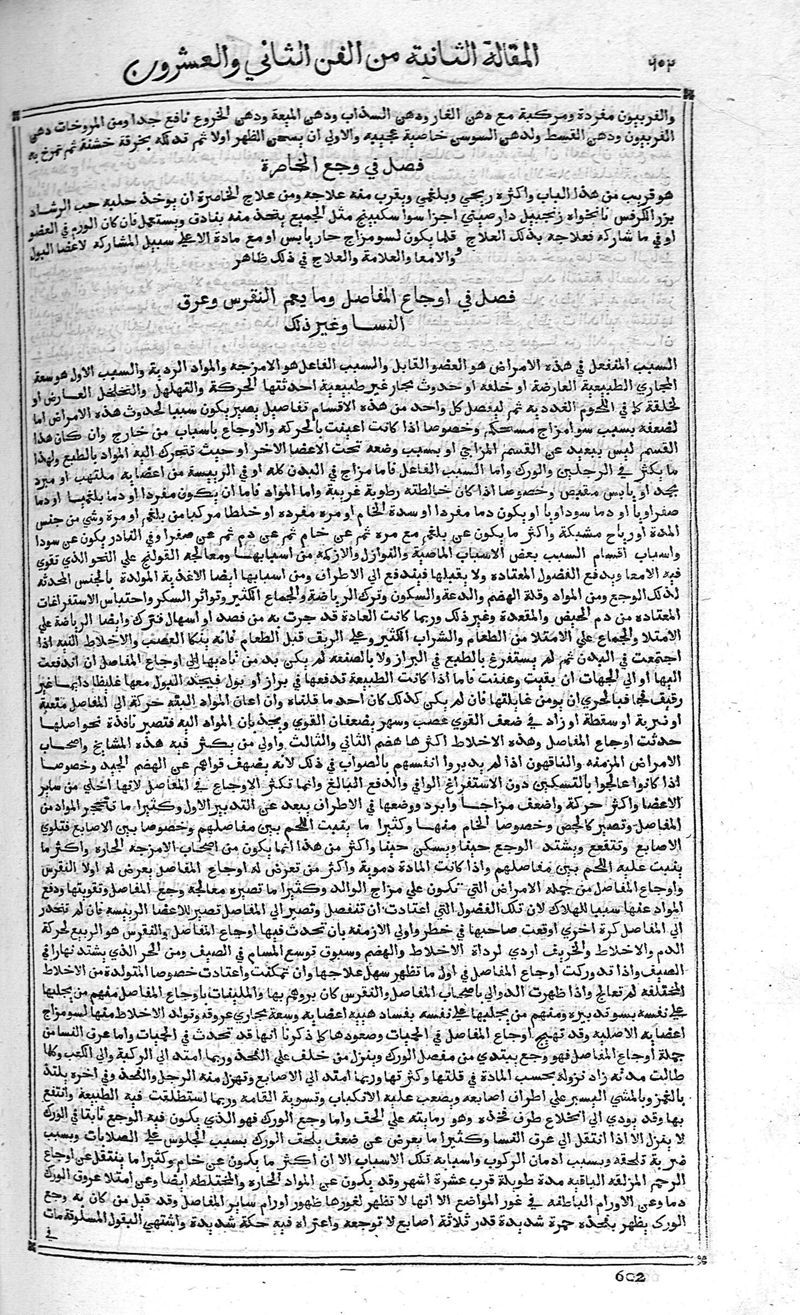 ٦٠٢ المقالة الثانية من الفن الثاني والعشرون
والفربيون مفردة ومركبة مع دهن الغار ودهن السذاب ودهن الميعة ودهن الخروع نافع جدا ومن المروخات دهن
الفربيون ودهن القسط ولدهن السوسن خاصية عجيبه والاولي ان يسخن الظهر اولا ثم تدلكه بخرقة خشنة ثم تمرخ به
فصل في وجع الخاصرة
هو قريب من هذا الباب واكثره ريحي وبلغمي ويقرب منه علاجه ومن علاج الخاصرة ان يوخذ حلبه حب الرشاد
بزر الكرفس نانخواه زنجبيل دارصيني اجزا سوا سكبينج مثل الجميع يتخذ منه بنادق ويستعمل فان كان الورم في العضو
او في ما شاركه فعلاجه بذلك العلاج قلما يكون لسو مزاج حار يابس او مع مادة الا علي سبيل المشاركه لاعضا البول
والامعا والعلامة والعلاج في ذلك ظاهر
فصل في اوجاع المفاصل وما يعم النقرس وعرق
النسا وغير ذلك
السبب المنفعل في هذه الامراض هو العضو القابل والسبب الفاعل هو الامزجه والمواد الردية والسبب الاول هو سعة
المجاري الطبيعية العارضة او خلقه او حدوث مجار غير طبيعية احدثتها الحركة والتهلهل والتخلخل العارض او
لخلقة كما في اللحوم الغدديه ثم ليفصل كل واحد من هذه الاقسام تفاصيل يصير يكون سببا لحدوث هذه الامراض اما
لضعفه بسبب سو مزاج مستحكم وخصوصا اذا كانت اعينت بالحركه والاوجاع باسباب من خارج وان كان هذا
القسم ليس ببعيد عن القسم المزاجي او بسبب وضعه تحت الاعضا الاخر او حيث تتحرك اليه المواد بالطبع ولهذا
ما يكثر في الرجلين والورك واما السبب الفاعل فاما مزاج في البدن كله او في الرييسة من اعضايه ملتهب او مبرد
مجمد او يابس مقبض وخصوصا اذا كان خالطته رطوبة غريبة واما المواد فاما ان يكون مفردا او دما بلغميا او دما
صفراويا او دما سوداويا او يكون دما مفردا او سدة الخام او مره مفرده او خلطا مركبا من بلغم او مرة وشي من جنس
المدة او رياح مشبكة واكثر ما يكون عن بلغم مع مره ثم عن خام ثم عن دم ثم عن صفرا وفي النادر يكون عن سودا
واسباب اقسام السبب بعض الاسباب الماضية والنوازل والازكه من اسبابهـا ومعالجه القولنج علي النحو الذي تقوي
فيه الامعا ويدفع الفضول المعتاده ولا يقبلها فيندفع الي الاطراف ومن اسبابها ايضا الاغذية المولدة بالجنس المحدثه
لذلك الوجع ومن المواد وقلة الهضم والدعة والسكون وترك الرياضة والجماع الكثير وتواتر السكر واحتباس الاستفراغات
المعتاده من دم الحيض والمقعدة وغير ذلك وربما كانت العادة قد جرت به من فصد او اسهال فترك وايضا الرياضة علي
الامتلا والجماع علي الامتلا من الطعام والشراب الكثير وعلي الريف قبل الطعام فانه ينكا العصب والاخلاط النيه اذا
اجتمعت في البدن ثم لم يستفرغ بالطبع في البراز ولا بالصنعه لم يكن بد من تاديها الي اوجاع المفاصل ان اندفعت
اليها او الي الجهات ان بقيت وعفنت فاما اذا كانت الطبيعة تدفعها في براز او بول فيجد البول معها غليظا دايما غير
رقيف فجا فبالحري ان يومن غايلتها فان لم يكن كذلك كان احد ما قلناه وان اعان المواد البيه حركة الي المفاصل متعبة
او ضربة او سقطة او زاد في ضعف القوي غضب وسهر يضعفان القوي ويجذبان المواد اليه فتصير نافذة نحو اصلها
حدثت اوجاع المفاصل وهذه الاخلاط اكثرها هضم الثاني والثالث واولي من يكثر فيه هذه المشايخ واصحاب
الامراض المزمنه والناقهون اذا لم يدبروا انفسهم بالصواب في ذلك لانه يضهف قواهم عن الهضم الجيد وخصوصا
اذا كانوا عالجوا بالتسكين دون الاستفراغ الوافي والدفع البالغ وانما تكثر الاوجاع في المفاصل لانها اخلي من ساير
الاعضا واكثر حركة واضعف مزاجـا وابرد ووضعها في الاطراف يبعد عن التدبير الاول وكثيرا ما تتحجر المواد من
المفاصل وتصير كالجص وخصوصا الخام منهـا وكثيرا ما ينبت اللحم بين مفاصلهم وخصوصا بين الاصابع فتلوي
الاصابع وتتقعع ويشتد الوجع حينا ويسكن حينا واكثر من هذا انما يكون من اصحاب الامزجه الحاره واكثر ما
ينبت عليه اللحم بين مفاصلهم واذا كانت المادة دموية واكثر من تعرض له اوجاع المفاصل يعرض له اولا النقرس
واوجاع المفاصل من جمله الامراض التي تكون علي مزاج الوالد وكثيرا ما تصيره معالجه وجع المفاصل وتقويتها ودفع
المواد عنها سببا للهلاك لان تلك الفضول التي اعتادت ان تنفصل وتصير الي المفاصل تصير للاعضا الرييسه فان لم تنحدر
الي المفاصل كرة اخري اوقعت صاحبها في خطر واولي الازمنه بان تحدث فيها اوجاع المفاصل والنقرس هو الربيع لحركة
الدم والاخلاط والخريف اردي لرداة الاخلاط والهضم وسبوق توسع المسام في الصيف ومن الحر الذي يشتد نهارا في
الصيف واذا تدوركت اوجاع المفاصل في اول ما تظهر سهل علاجها وان تمكنت واعتادت خصوصا المتولدة من الاخلاط
المختلفه لم تعالج واذا ظهرت الدوالي باصحاب المفاصل والنقرس كان بروهم بها والملينات باوجاع المفاصل منهم من يجلبها
علي نفسه بسو تدبيره ومنهم من يجلبها علي نفسه بفساد هييه اعضايه وسعة مجاري عروقه وتولد الاخلاط منها لسو مزاج
اعضايه الاصليه وقد تهيج اوجاع المفاصل في الحميات وصعودها كما ذكرنا انها قد تحدث في الحميات واما عرق النسا من
جملة اوجاع المفاصل فهو وجع يبتدي من مفصل الورك وينزل من خلف علي الفخذ وربما امتد الي الركبة والي الكعب وكلما
طالت مدته زاد نزوله بحسب المادة في قلتها وكثرتها وربما امتد الي الاصابع وتهزل منه الرجل والفخذ وفي اخره يلتذ
بالغمز وبالمشي اليسير علي اطراف اصابعه ويصعب عليه الانكباب وتسوية القامه وربما استطلقت فيه الطبيعة وانتفع
بها وقد يودي الي انخلاع طرف فخذه وهو رمانته علي الحف واما وجع الورك فهو الذي يكون فيه الوجع ثابتا في الورك
لا ينزل الا اذا انتقل الي عرق النسا وكثيرا ما يعرض عن ضعف يلحف الورك بسبب الجلوس علي الصلابات وبسبب
ضربة تلحقه وبسبب ادمان الركوب واسبابه تلك الاسباب الا ان اكثر ما يكون عن خام وكثيرا ما ينتقل عن اوجاع
الرحم المزلقه الباقيه مدة طويلة قرب عشرة اشهر وقد يكون عن المواد الحاره والمختلطه ايضا وعن امتلا عروق الورك
دما وعن الاورام الباطنه في غور المواضع الا انها لا تظهر لغورها ظهور اورام ساير المفاصل وقد قيل من كان به وجع
الورك يظهر بفخذه حمرة شديدة قدر ثلاثة اصابع لا توجعه واعتراه فيه حكة شديدة واشتهي البقول المسلوقه مات
في
602